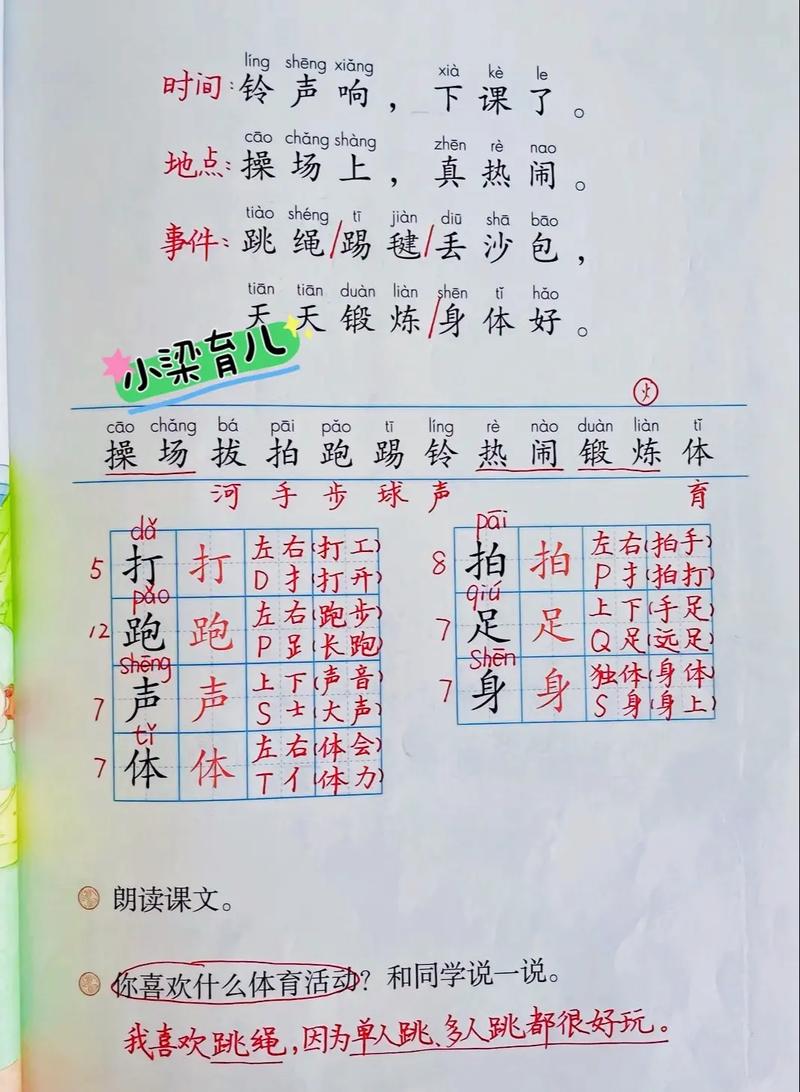 líng shēng xiǎng xià kè le
时间:铃声响，下课了。
cāo chǎng shàng zhēn rè nao
地点:操场上，真热闹。
tiào shéng tī jiàn diū shā bāo
事件:跳绳/踢毽/丢沙包，
tiān tiān duàn liàn shēn tǐ hǎo
天天锻炼/身体好。
小梁育儿
火
cāo chǎng bá pāi pǎo tī líng rè nào duàn liàn tǐ
操场拔拍跑踢铃热闹锻炼体
河手步球声育
dǎ
5 打 打 左右(打工)
D 扌(打开)
pǎo
12 跑 跑 左右(跑步)
P 𧾷(长跑)
shēng
7 声 声 上下(声音)
S 士(大声)
tǐ
7 体 体 左右(体会)
T 亻(体力)
pāi
8 拍 拍 左右(拍手)
P 扌(拍打)
qiú
7 足 足 上下(手足)
Q 足(远足)
Shēn
7 身 身 独体(身体)
S 身(身上)
朗读课文。
你喜欢什么体育活动？和同学说一说。
我喜欢跳绳，因为单人跳、多人跳都很好玩。